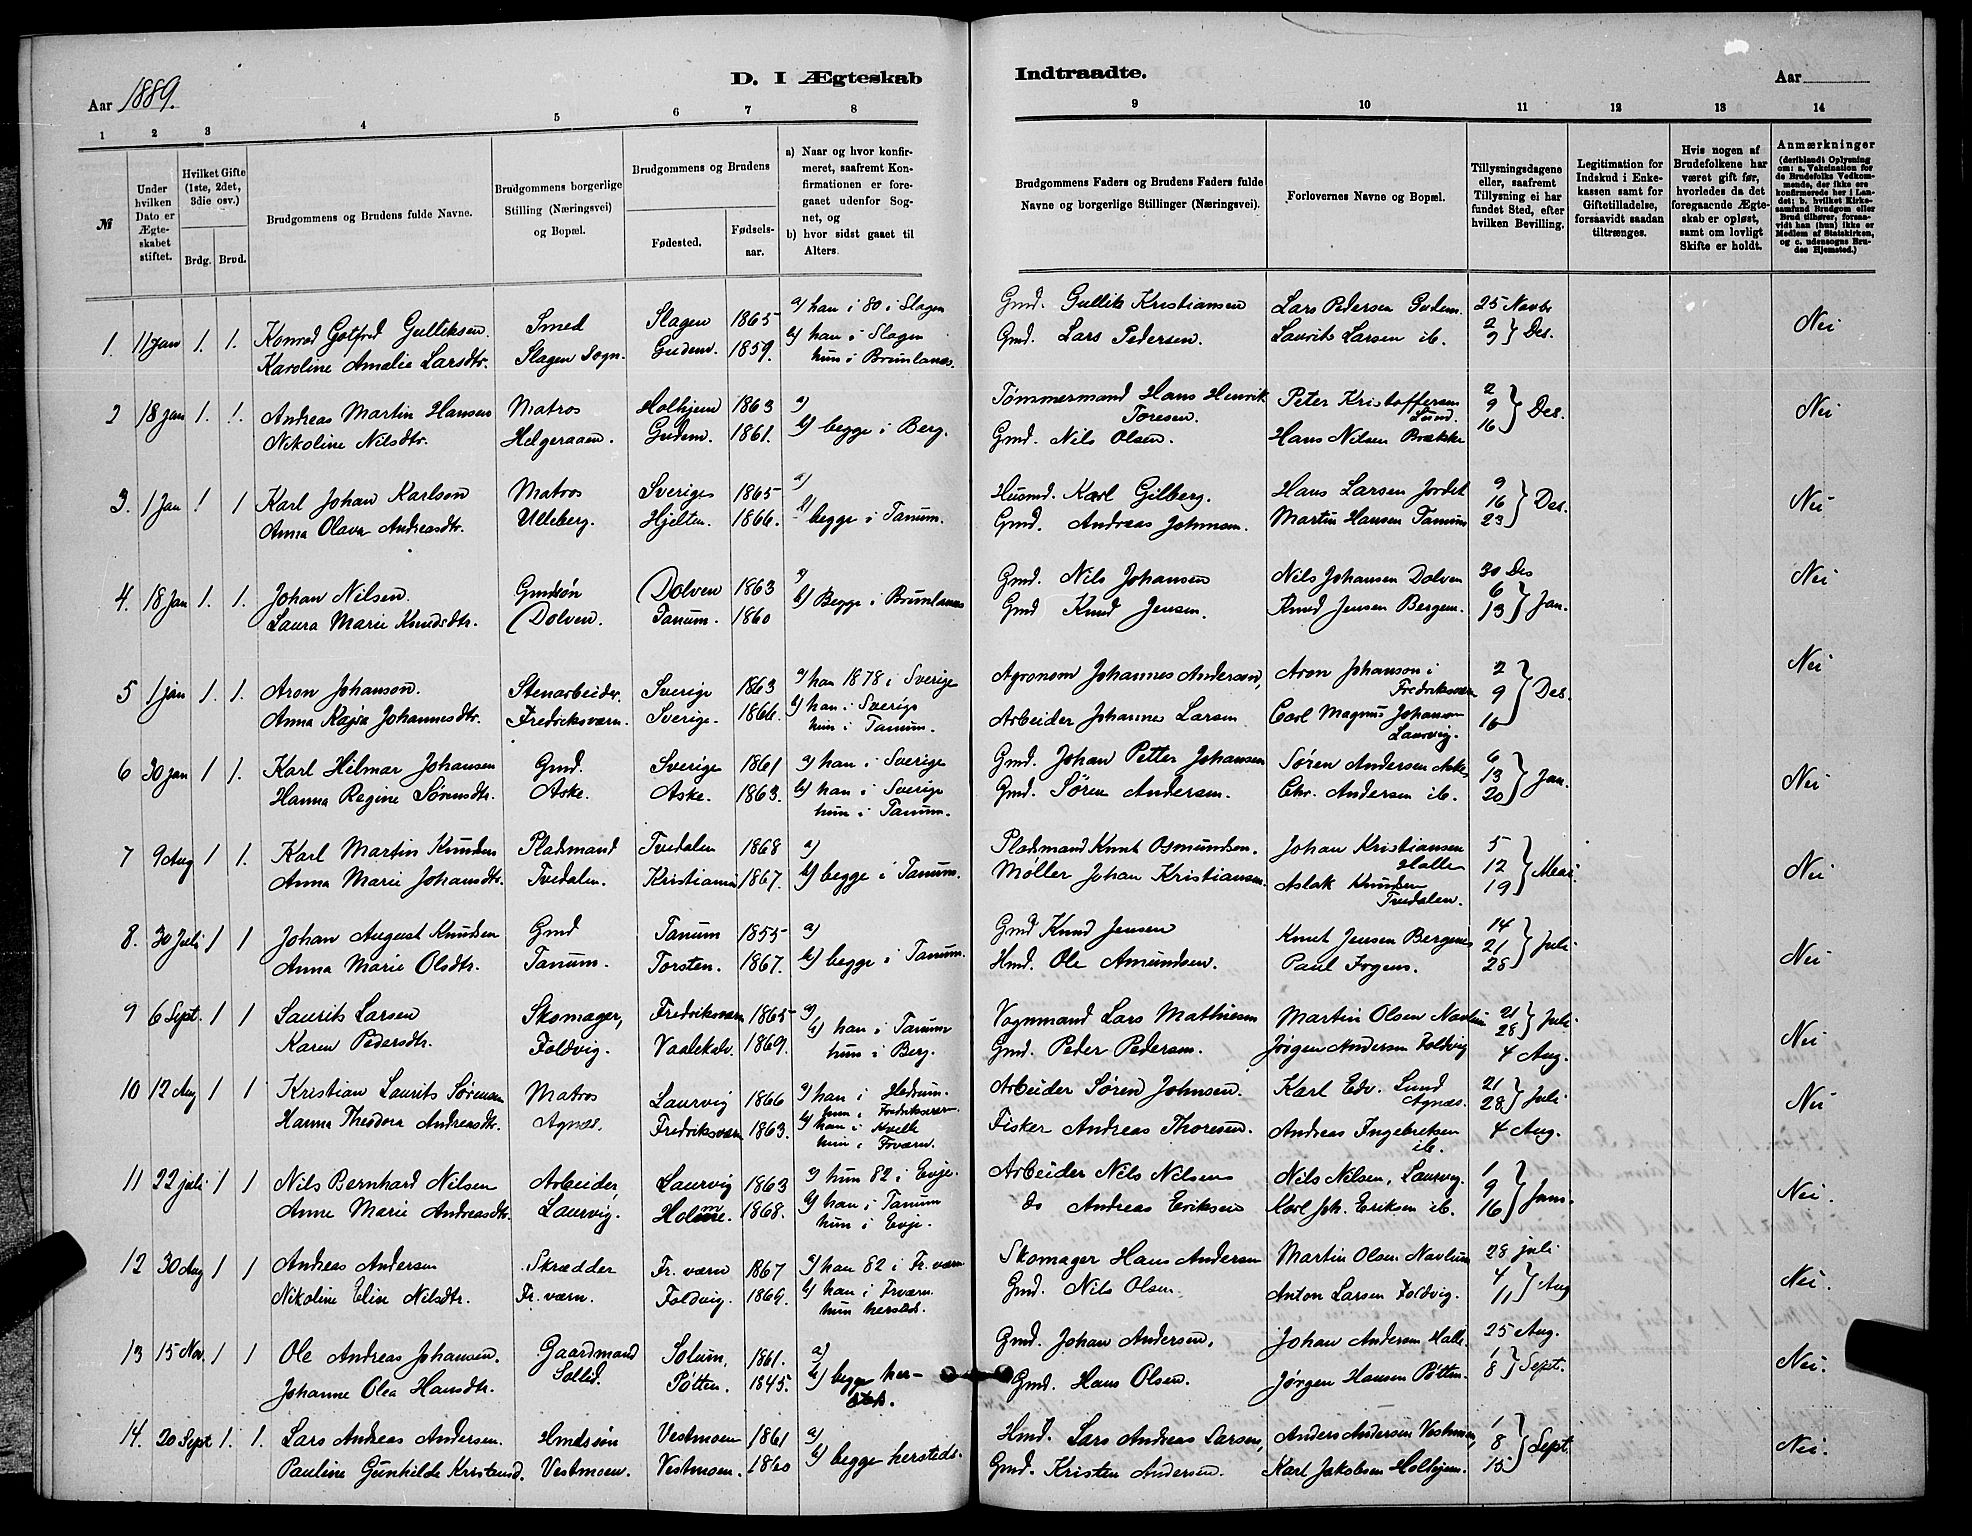 Aar 1889.
D. I Ægteskab
Indtraadte.
Aar
1 2 3 4 5 6 7 8 9 10 11 12 13 14
№
Under hvilken Dato er Ægteskabet stiftet.
Hvilket Gifte (1ste, 2det, 3die osv.)
Brdg. Brud.
Brudgommens og Brudens fulde Navne.
Brudgommens borgerlige Stilling (Næringsvei) og Bopæl.
Brudgommens og Brudens
Fødested.
Fødselsaar.
a) Naar og hvor konfirmeret, saafremt Konfirmationen er foregaaet udenfor Sognet, og
b) hvor sidst gaaet til Alters.
Brudgommens Faders og Brudens Faders fulde Navne og borgerlige Stillinger (Næringsvei).
Forlovernes Navne og Bopæl.
Tillysningsdagene eller, saafremt Tillysning ei har fundet Sted, efter hvilken Bevilling.
Legitimation for Indskud i Enkekassen samt for Giftetilladelse, forsaavidt saadan tiltrænges.
Hvis nogen af Brudefolkene har været gift før, hvorledes da det foregaaende Ægteskab er opløst, samt om lovligt Skifte er holdt.
Anmærkninger (deriblandt Oplysning om: a. Vakcination for de Brudefolks Vedkommende, der ikke ere konfirmerede her i Landet; b. hvilket Kirkesamfund Brudgom eller Brud tilhører, forsaavidt han (hun) ikke er Medlem af Statskirken, og c. udensogns Brudes Hjemsted.)
1. 11 Jan 1. 1. Konrad Gotfred Gulliksen Smed Slagen 1865 a) han i 80 i Slagen Gmd. Gullik Kristiansen Lars Pedersen Gudem 25 Novbr Nei
Karoline Amalie Larsdtr. Slagen Sogn. Gudem. 1859. b) han i Slagen hun i Brunlanæs. Gmd. Lars Pedersen. Laurits Larsen ib. 2 9 } Des.
2 18 Jan 1. 1. Andreas Martin Hansen Matros Holhjem 1863 a) Tømmermand Hans Henrik Toresen. Peter Kristoffersen Lund. 2 9 16 } Des. Nei
Nikoline Nilsdtr. Helgeraaen. Gudem. 1861. b) begge i Berg. Gmd. Nils Olsen. Hans Nilsen Brække
3. 1 Jan 1 1 Karl Johan Karlson Matros Sverige 1865 a) Husmd. Karl Gilberg. Hans Larsen Jordet 9 16 23 } Des. Nei
Anna Olava Andreasdtr. Ulleberg. Hjelten. 1866. b) begge i Tanum. Gmd. Andreas Johnsen. Martin Hansen Tanum
4. 18 Jan 1. 1. Johan Nilsen. Gmdsøn Dolven 1863 a) Gmd. Nils Johansen Nils Johansen Dolven 30 Des Nei
Laura Marie Knudsdtr. Dolven. Tanum. 1860 b) Begge i Brunlanæs Gmd Knud Jensen. Knud Jensen Bergene. 6 13 } Jan.
5 1 jan 1. 1. Aron Johanson. Stenarbeider. Sverige 1863 a) han 1878 i Sverige Agronom Johannes Andersen, Aron Johanson i Fredriksværn 2 9 16 } Des. Nei
Anna Kajsa Johannesdtr. Fredriksværn. Sverige. 1866. b) han i Sverige hun i Tanum. Arbeider Johannes Larsen Carl Magnus Johanson Laurvig.
6 30 jan 1 1. Karl Hilmar Johansen Gmd. Sverige 1861 a) han i Sverige Gmd. Johan Petter Johansen Søren Andersen Aske, 6 13 20 } Jan. Nei
Hanna Regine Sørensdtr. Aske. Aske. 1863. b) han i Sverige hun i Tanum. Gmd. Søren Andersen. Chr. Andersen ib.
7 9 Aug 1 1. Karl Martin Knudsen Pladsmand Tvedalen 1868 a) Pladsmand Knut Osmundsen. Johan Kristiansen Halle 5 12 19 } Mai. Nei
Anna Marie Johansdtr. Tvedalen. Kristiania 1867. b) begge i Tanum. Møller Johan Kristiansen. Aslak Knudsen Tvedalen.
8. 30 Juli 1 1 Johan August Knudsen Gmd Tanum 1855 a) Gmd Knud Jensen Knut Jensen Bergene 14 21 28 } Juli Nei
Anna Marie Olsdtr. Tanum. Torsten. 1867. b) begge i Tanum. Hmd. Ole Amundsen. Paul Fogens.
9 6 Sept. 1 1 Laurits Larsen Skomager, Fredriksværn 1865 a) Vognmand Lars Mathiesen Martin Olsen Navlum 21 28 } Juli Nei
Karen Pedersdtr. Foldvig. Vaalekalv. 1869. b) han i Tanum hun i Berg. Gmd. Peder Pedersen. Jørgen Andersen Foldvig 4 Aug.
10 12 Aug 1 1 Kristian Laurits Sørensen Matros Laurvig 1866 a) han i Hedrum. hun i Fredriksværn Arbeider Søren Johnsen. Karl Edv. Lund Agnæs. 21 28 } Juli Nei
Hanna Theodora Andreasdtr. Agnæs. Fredriksværn 1863. b) han i Kvelle hun i Frværn. Fisker Andreas Thoresen. Andreas Ingebretsen ib. 4 Aug.
11 22 juli 1 1 Nils Bernhard Nilsen Arbeider, Laurvig 1863 a) hun 82 i Evje. Arbeider Nils Nilsen Nils Nilsen, Laurvig. 1 9 16 } Nei.
Anne Marie Andreasdtr. Laurvig. Holme. 1868. b) han i Tanum hun i Evje. do Andreas Eriksen Karl Joh. Eriksen ib.
12 30 Aug 1 1 Andreas Andersen Skrædder Fr. værn 1867 a) han 82 i Fr. værn Skomager Hans Andersen Martin Olsen Navlum 28 juli Nei.
Nikoline Elise Nilsdtr. Fr. værn. Foldvig. 1869. b) han i Frværn. hun herstds. Gmd. Nils Olsen. Anton Larsen Foldvig. 4 11 } Aug
13 15 Nov. 1 1 Ole Andreas Johansen. Gaardmand Solum, 1861. a) Gmd. Johan Andersen. Johan Andersen Halle. 25 Aug. Nei.
Johanne Olea Hansdtr. Sollid. Pøtten. 1845. b) begge herstds. Gmd. Hans Olsen. Jørgen Hansen Pøtten 1 8 } Sept.
14. 20 Sept 1. 1. Lars Andreas Andersen. Hmdssøn Vestmoen 1861 a) Hmd. Lars Andreas Larsen, Anders Andersen Vestmoen, 1 8 15 } Sept. Nei.
Pauline Gunhilde Kristensd. Vestmoen. Vestmoen. 1860 b) begge hersteds. Gmd. Kristen Andersen. Karl Jakobsen Holhjem.